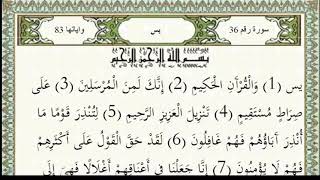 سورة رقم 36 يس وآياتها 83
بِسْمِ اللَّهِ الرَّحْمَٰنِ الرَّحِيمِ
يس (1) وَالْقُرْآنِ الْحَكِيمِ (2) إِنَّكَ لَمِنَ الْمُرْسَلِينَ (3) عَلَى
صِرَاطٍ مُسْتَقِيمٍ (4) تَنْزِيلَ الْعَزِيزِ الرَّحِيمِ (5) لِتُنْذِرَ قَوْمًا مَا
أُنْذِرَ آبَاؤُهُمْ فَهُمْ غَافِلُونَ (6) لَقَدْ حَقَّ الْقَوْلُ عَلَى أَكْثَرِهِمْ
فَهُمْ لَا يُؤْمِنُونَ (7) إِنَّا جَعَلْنَا فِي أَعْنَاقِهِمْ أَغْلَالًا فَهِيَ إِلَى